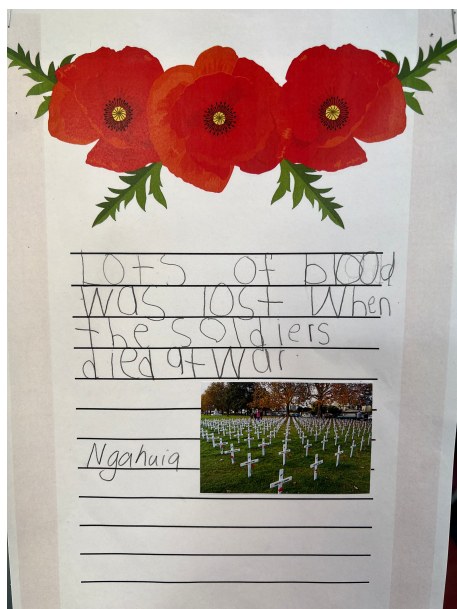 Lots of blood
was lost When
the soldiers
died at war.
Ngahuia